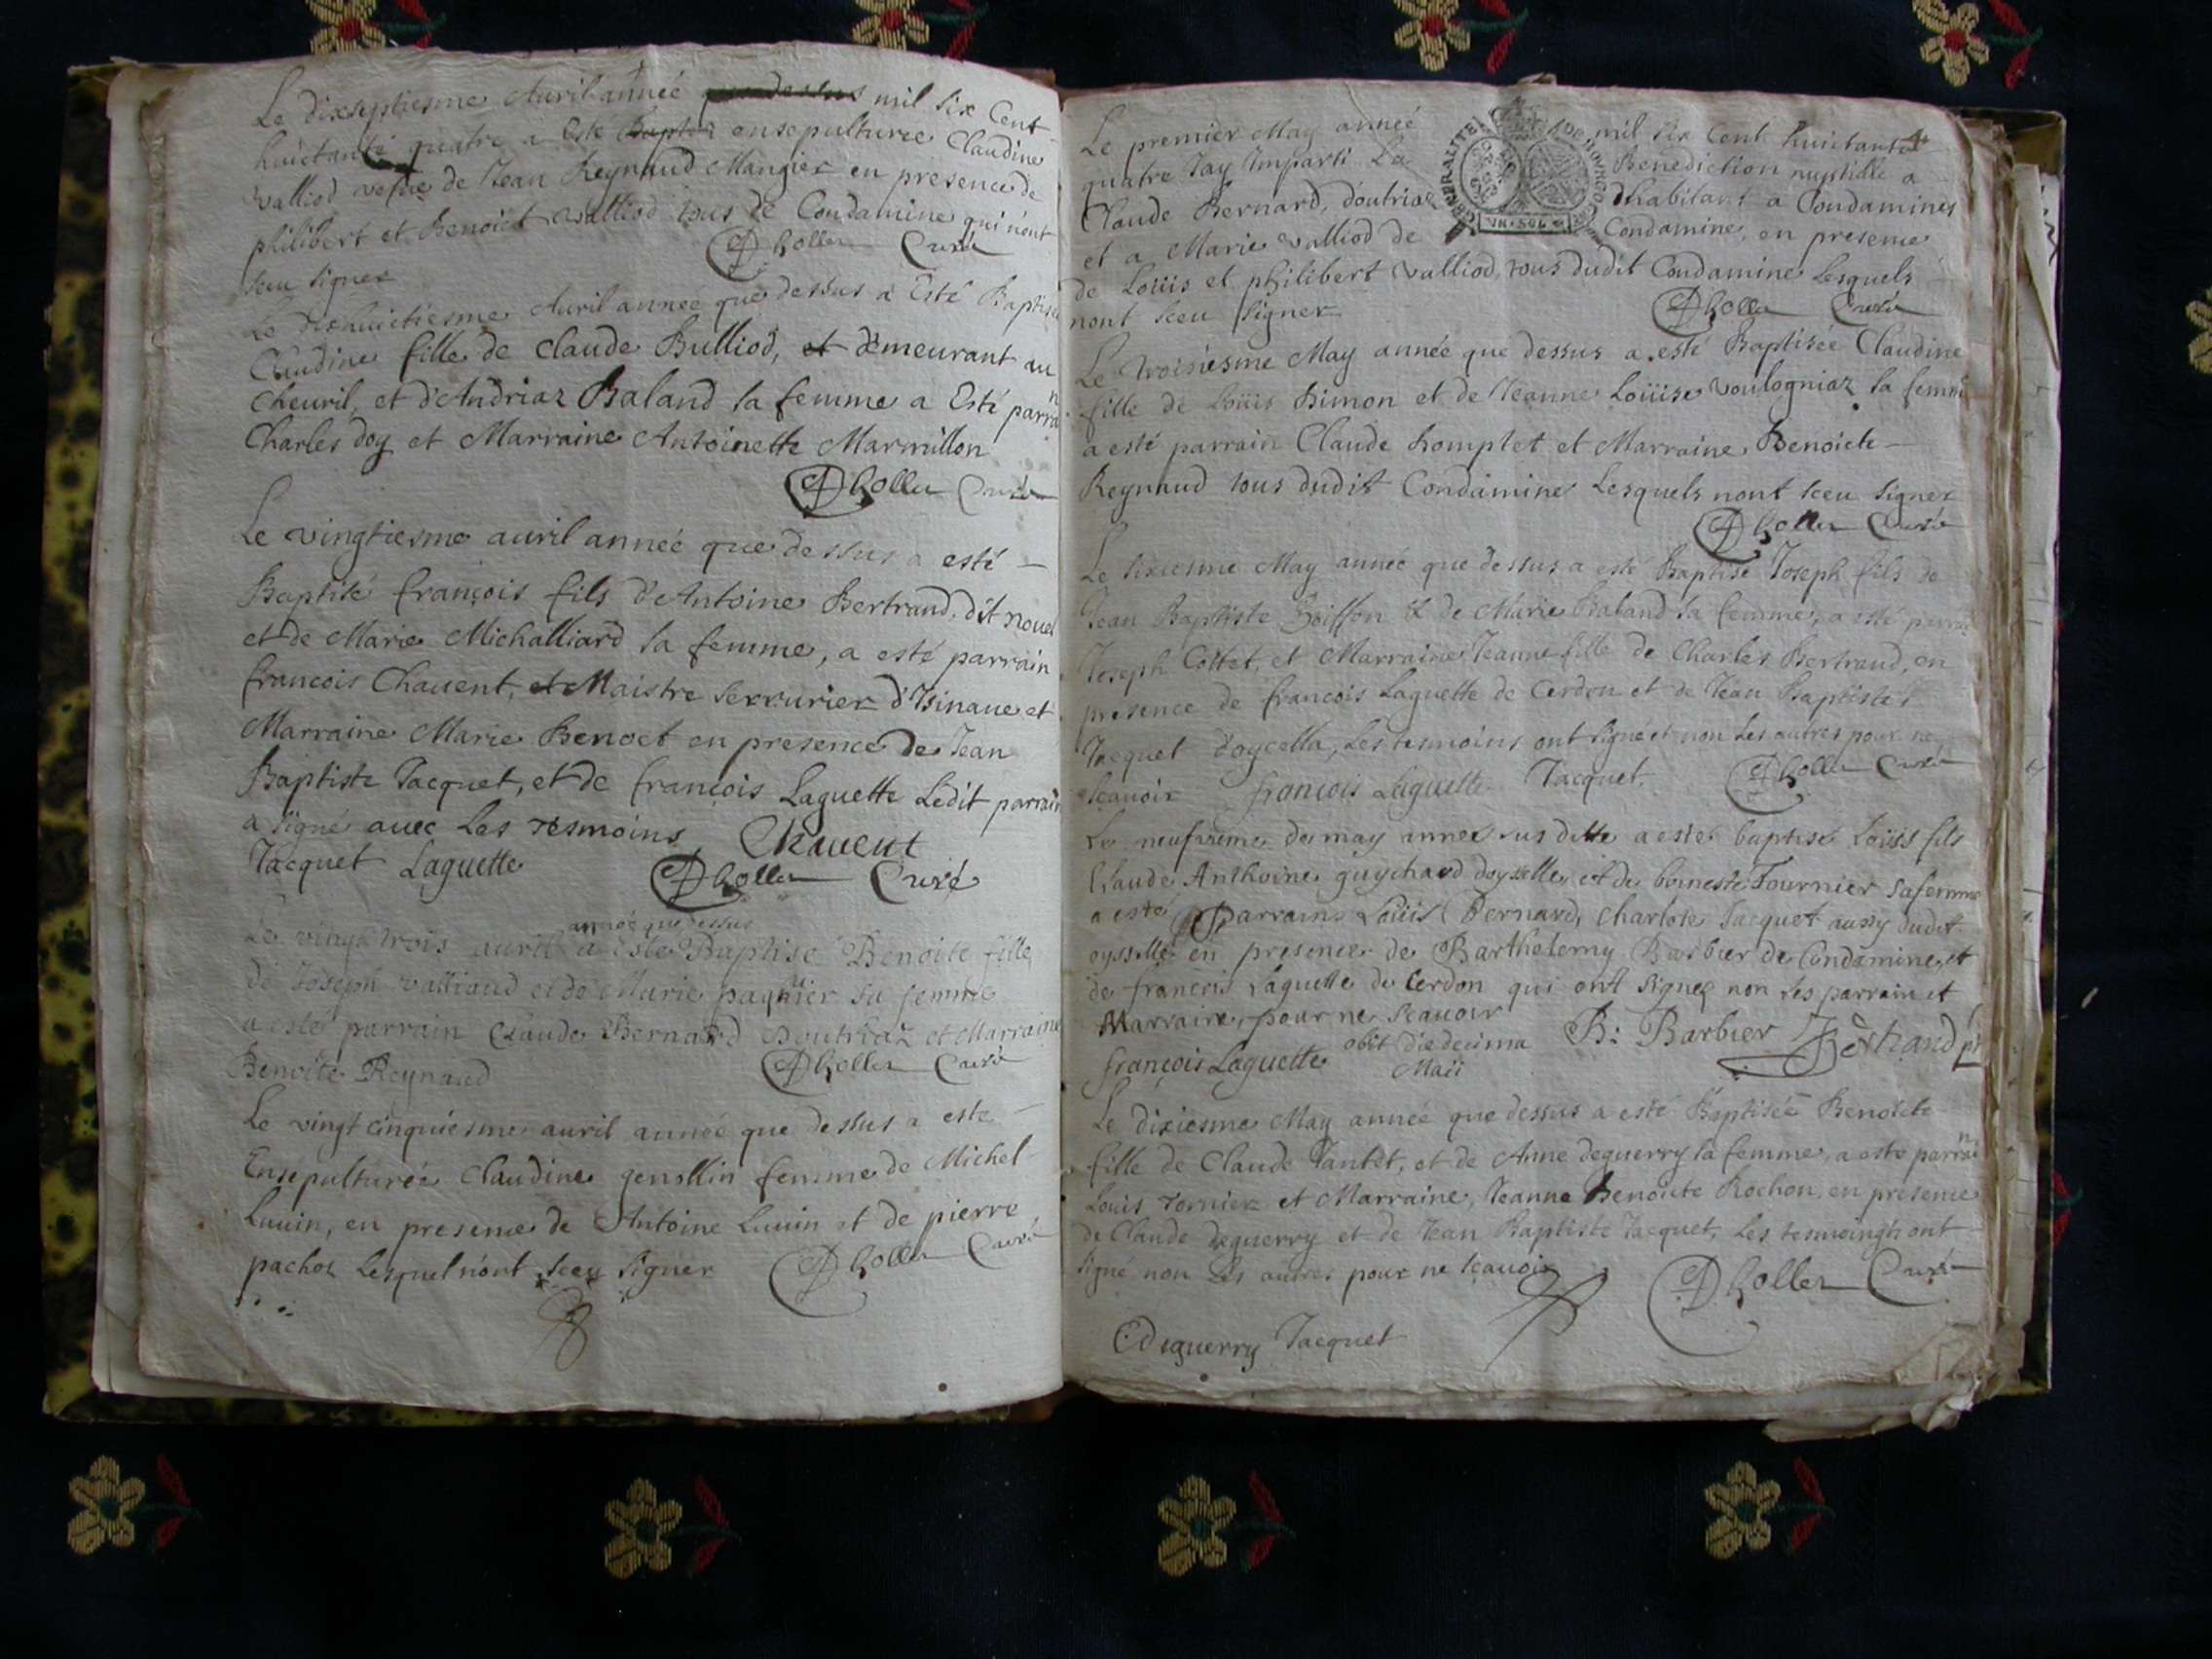 Le dixseptiesme Auril année que dessus mil six Cent
huictante quatre a Esté Baptis ensepulturée Claudine
Valliod vefue de Jean Reynaud Mangier en presence de
philibert et Benoict Valliod tous de Condamine qui n'ont
sceu signer Curé
Le dixhuictiesme Auril année que dessus a Esté Baptisée
Claudine fille de Claude Bulliod, et demeurant au
Cheuril, et d'Andriaz Baland sa femme a Esté parrain
Charles doy et Marraine Antoinette Marmillon
Curé
Le vingtiesme auril année que dessus a esté
Baptisé françois fils d'Antoine Bertrand, dit nouel
et de Marie Michalliard sa femme, a esté parrain
francois Chauent, et Maistre Serrurier d'Isinaue et
Marraine Marie Benoct en presence de Jean
Baptiste Jacquet, et de françois Laguette Ledit parrain
a signé auec Les tesmoins Chauent
Jacquet Laguette Curé
année que dessus
Le vingt trois auril a Esté Baptisé Benoite fille
de Joseph Valliaud et de Marie sa femme
a esté parrain Claude Bernard Doutriaz et Marraine
Benoite Reynaud Curé
Le vingt cinquiesme auril année que dessus a esté
Ensepulturée Claudine femme de Michel
Luuin, en presence de Antoine Luuin et de pierre
pachoz Lesquel n'ont sceu signer Curé
4
Le premier May année mil six Cent huictante
quatre Jay Imparti La Benediction nuptialle a
Claude Bernard, doutriaz dhabitant a Condamines
et a Marie Valliod de Condamine, en presence
GENERALITE DE BOURGOGNE
de Loüis et philibert Valliod, tous dudit Condamine Lesquels
nont sceu signer Curé
Le troisiesme May année que dessus a esté Baptisée Claudine
fille de Loüis Simon et de Jeanne Loüise Voulogniaz sa femme
a esté parrain Claude homptet et Marraine Benoicte
Reynaud tous dudit Condamine Lesquels nont sceu signer
Curé
Le sixiesme May année que dessus a esté Baptisé Joseph fils de
Jean Baptiste Goiffon & de Marie Baland sa femme, a esté parrain
Joseph Cottet, et Marraine Jeanne fille de Charles Bertrand, en
presence de francois Laguette de Cerdon et de Jean Baptiste
Jacquet d'oycella, Les tesmoins ont signé et non Les autres pour ne
scauoir francois Laguette Jacquet Curé
Le neufvieme de may annee sus ditte a esté baptisé Loüis fils
Claude Anthoine guychard doysselle et de Fournier sa femme
a esté parrains Loüis Bernard, Charlote Jacquet aussy dudit
oysselle en presence de Barthelemy Barbier de Condamine et
de francois Laguette de Cerdon qui ont signez non Les parrain et
Marraine, pour ne scauoir B: Barbier Bertrand
françois Laguette obiit die decima
Maii
Le dixiesme May année que dessus a esté Baptisée Benoicte
fille de Claude Tantet, et de Anne deguerry sa femme, a esté parrain
Louis Tornier et Marraine, Jeanne Benoicte Rochon, en presence
de Claude deguerry et de Jean Baptiste Jacquet, Les tesmoingts ont
signé non Les autres pour ne scauoir Curé
C deguerry Jacquet